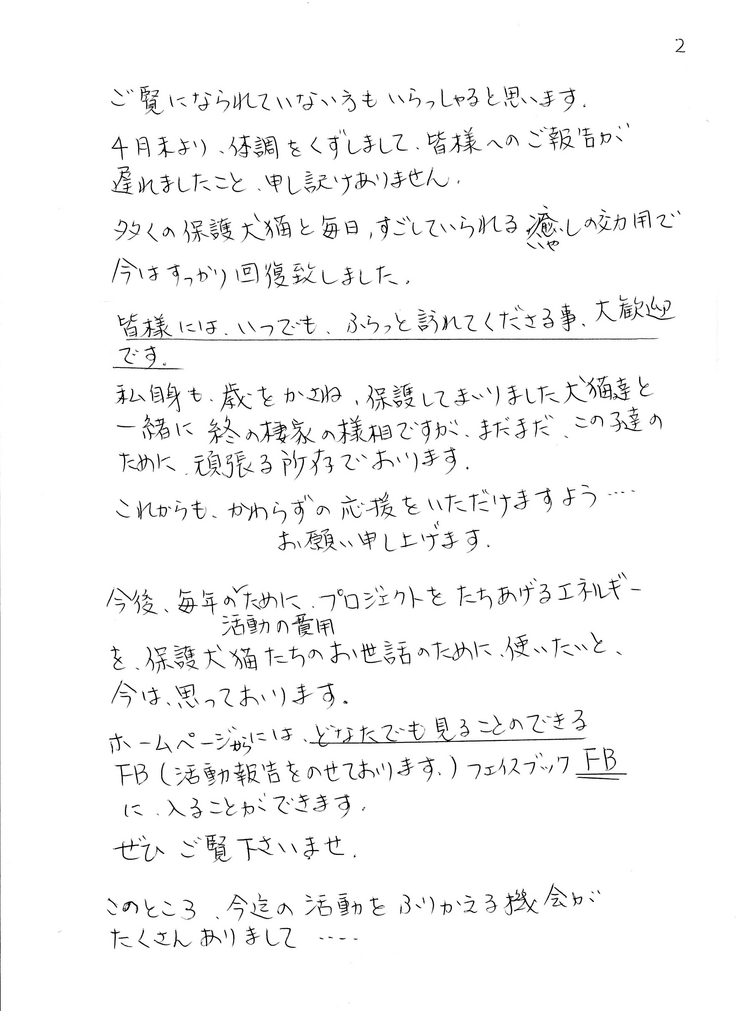 2
ご覧になられていない方もいらっしゃると思います.
4月末より、体調をくずしまして、皆様へのご報告が
遅れましたこと、申し訳けありません.
多くの保護犬猫と毎日、すごしていられる癒しの効用で
いや
今はすっかり回復致しました.
皆様には、いつでも、ふらっと訪れてくださる事、大歓迎
です.
私自身も、歳をかさね、保護してまいりました犬猫達と
一緒に終の棲家の様相ですが、まだまだ、この子達の
ために、頑張る所存でおります.
これからも、かわらずの応援をいただけますよう‥‥
お願い申し上げます.
今後、毎年のために、プロジェクトをたちあげるエネルギー
活動の費用
を、保護犬猫たちのお世話のために、使いたいと、
今は、思っております.
ホームページからには、どなたでも見ることのできる
FB(活動報告をのせております.)フェイスブック FB
に、入ることができます.
ぜひ ご覧下さいませ.
このところ、今迄の活動をふりかえる機会が
たくさんありまして ‥‥